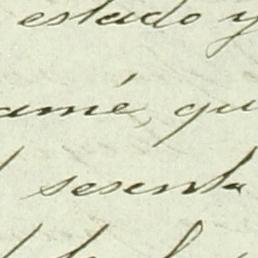 estado y
amé, qu
sesenta